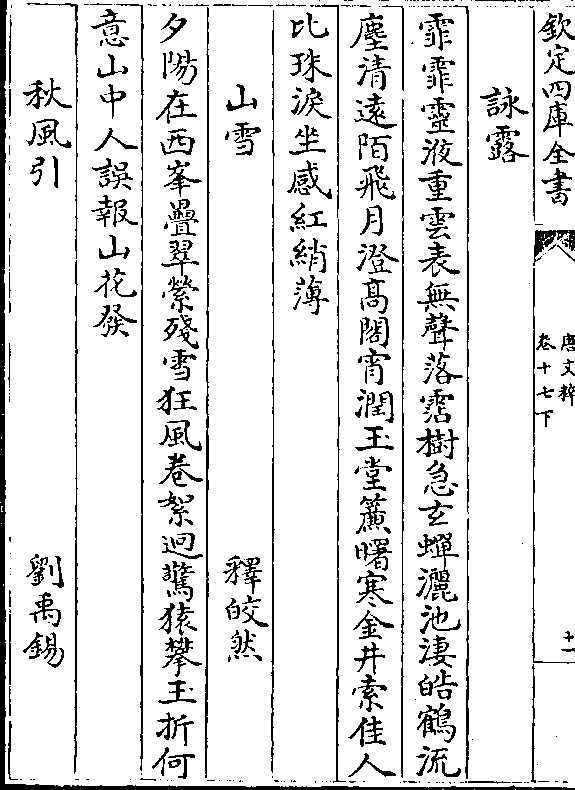 欽定四庫全書
唐文粹
卷十七下
十一
詠露
霏霏靈液重雲表無聲落霑樹急玄蟬灑池淒皓鶴流
塵清遠陌飛月澄高閣宵潤玉堂簾曙寒金井索佳人
比珠淚坐感紅綃薄
山雪 釋皎然
夕陽在西峯疊翠縈殘雪狂風卷絮迴驚猿攀玉折何
意山中人誤報山花發
秋風引 劉禹錫